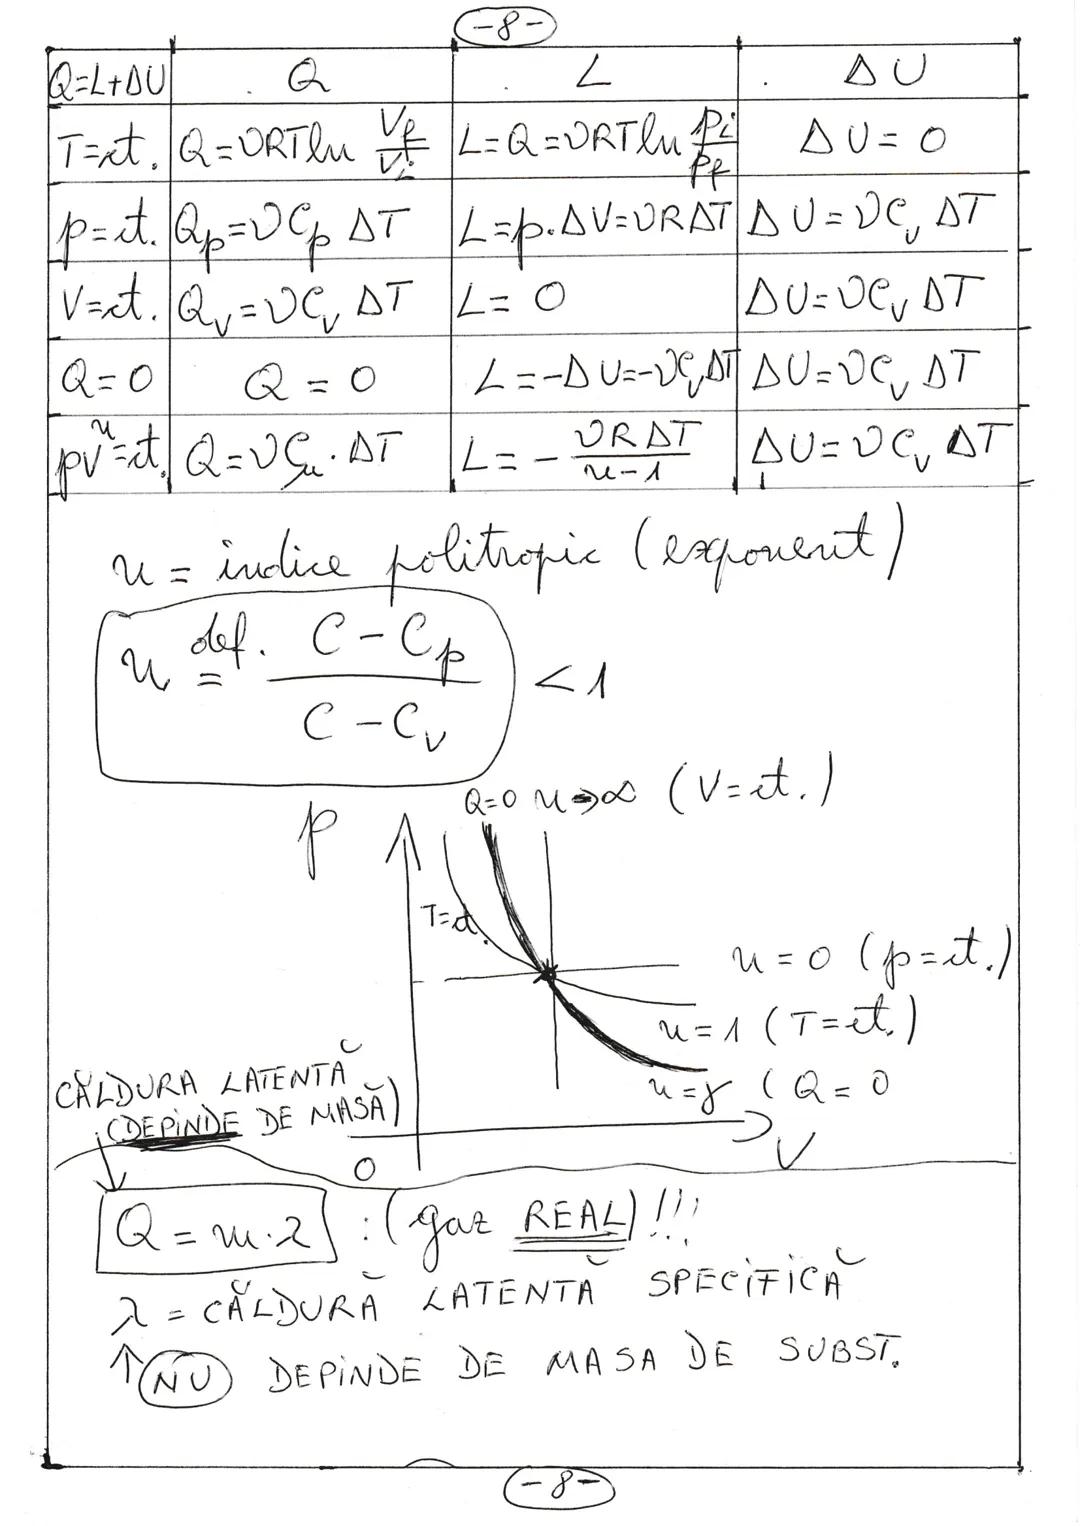 -8-
Q=L+ΔU Q L ΔU
T=ct. Q=νRTln Vf/Vi L=Q=νRTln pi/pf ΔU=0
p=ct. Qp=νCp ΔT L=p·ΔV=νRΔT ΔU=νCv ΔT
V=ct. Qv=νCv ΔT L=0 ΔU=νCv ΔT
Q=0 Q=0 L=-ΔU=-νCvΔT ΔU=νCv ΔT
pVⁿ=ct. Q=νCn·ΔT L=- νRΔT/n-1 ΔU=νCv ΔT
n = indice politropic (exponent)
n def.= C-Cp/C-Cv <1
Q=0 n→∞ (V=ct.)
p
T=ct.
n=0 (p=ct.)
n=1 (T=ct.)
n=γ (Q=0
CĂLDURA LATENTĂ
(DEPINDE DE MASĂ)
V
0
Q=m·λ :(gaz REAL)!!!
λ = CĂLDURĂ LATENTĂ SPECIFICĂ
↑ NU DEPINDE DE MASA DE SUBST.
-8-